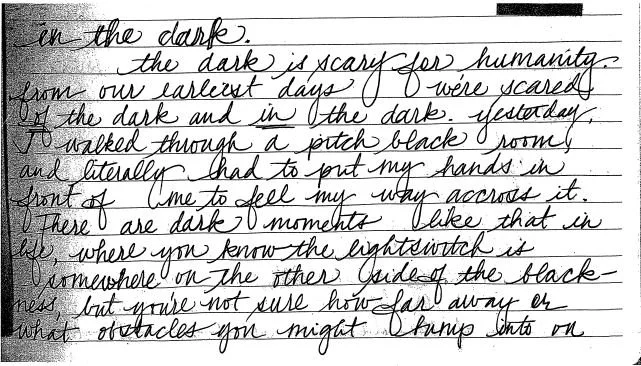 in the dark.
the dark is scary for humanity.
from our earliest days we're scared
of the dark and in the dark. yesterday,
I walked through a pitch black room,
and literally had to put my hands in
front of me to feel my way accross it.
There are dark moments like that in
life, where you know the lightswitch is
somewhere on the other side of the black-
ness, but you're not sure how far away or
what obstacles you might bump into on